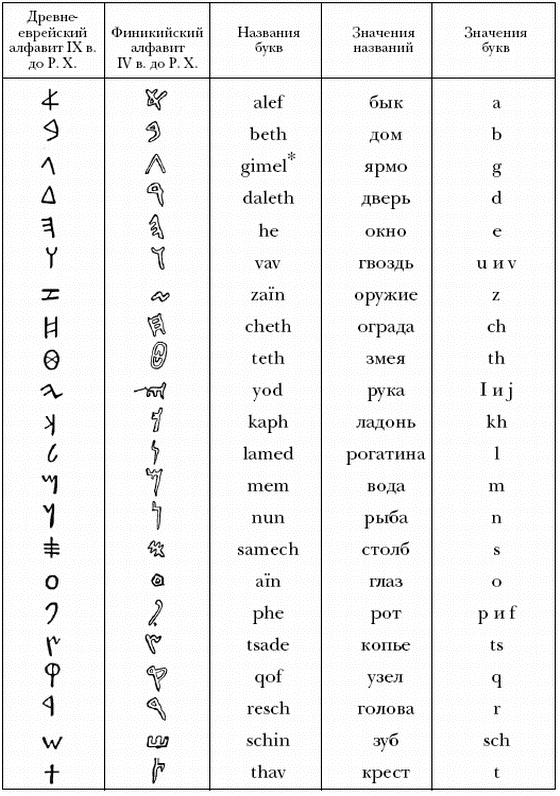 Древне-
еврейский
алфавит IX в.
до Р. Х.
Финикийский
алфавит
IV в. до Р. Х.
Названия
букв
Значения
названий
Значения
букв
𐤀 alef бык a
𐤁 beth дом b
𐤂 gimel* ярмо g
𐤃 daleth дверь d
𐤄 he окно e
𐤅 vav гвоздь u и v
𐤆 zaïn оружие z
𐤇 cheth ограда ch
𐤈 teth змея th
𐤉 yod рука I и j
𐤊 kaph ладонь kh
𐤋 lamed рогатина l
𐤌 mem вода m
𐤍 nun рыба n
𐤎 samech столб s
𐤏 aïn глаз o
𐤐 phe рот p и f
𐤑 tsade копье ts
𐤒 qof узел q
𐤓 resch голова r
𐤔 schin зуб sch
𐤕 thav крест t